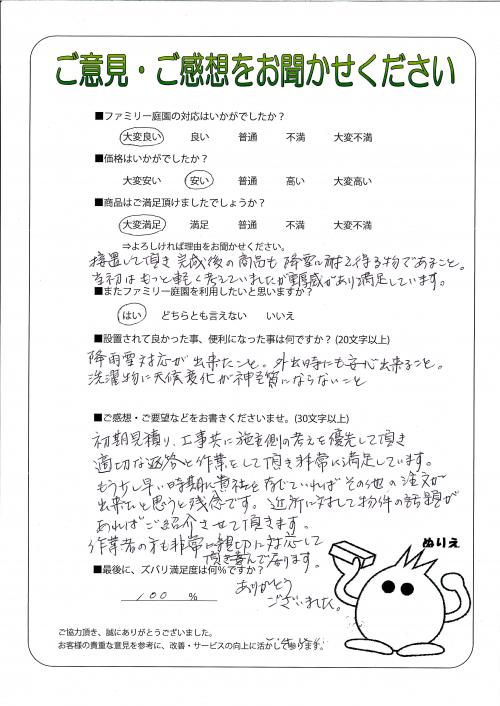 ご意見・ご感想をお聞かせください
■ファミリー庭園の対応はいかがでしたか？
大変良い　良い　普通　不満　大変不満
■価格はいかがでしたか？
大変安い　安い　普通　高い　大変高い
■商品はご満足頂けましたでしょうか？
大変満足　満足　普通　不満　大変不満
⇒よろしければ理由をお聞かせください。
して頂き完成後の商品も降雪に耐え得る物であること。
当初はもっと軽く考えていましたが重厚感があり満足しています。
■またファミリー庭園を利用したいと思いますか？
はい　どちらとも言えない　いいえ
■設置されて良かった事、便利になった事は何ですか？(20文字以上)
降雨雪対応が出来たこと。外出時にも安心出来ること。
洗濯物に天候変化が神経質にならないこと
■ご感想・ご要望などをお書きくださいませ。(30文字以上)
初期見積り、工事共に施主側の考えを優先して頂き
適切な返答と作業をして頂き非常に満足しています。
もう少し早い時期に貴社を存じていればその他の注文が
出来たと思うと残念です。近所に対して物件の話題が
あればご紹介させて頂きます。
作業者の方も非常に親切に対応して
頂き喜んでおります。
■最後に、ズバリ満足度は何％ですか？
100　％
ありがとう
ございました。
ぬりえ
ご協力頂き、誠にありがとうございました。
お客様の貴重な意見を参考に、改善・サービスの向上に活かして参ります。